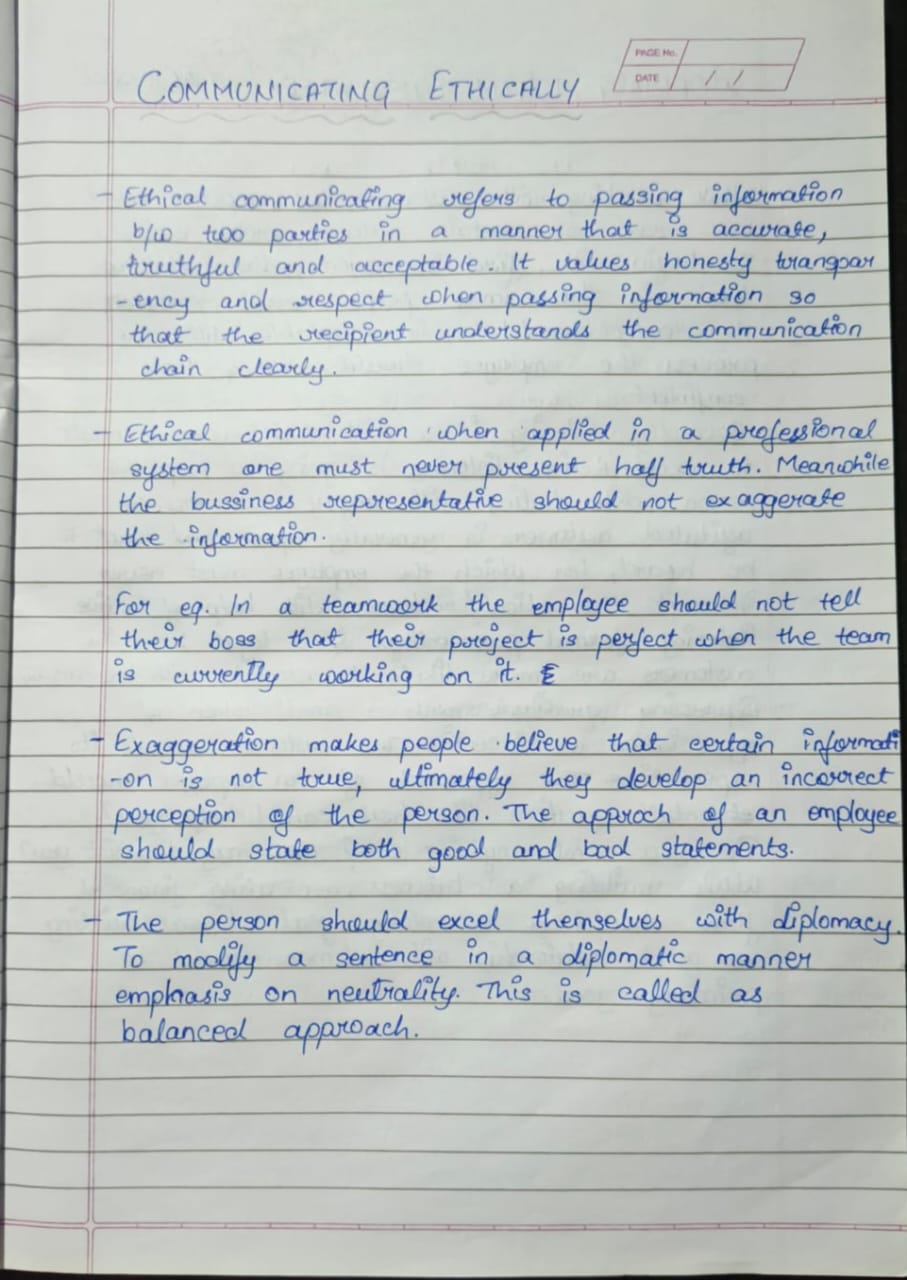 PAGE No.
DATE / /
COMMUNICATING ETHICALLY
- Ethical communicating refers to passing information
b/w two parties in a manner that is accurate,
truthful and acceptable. It values honesty transpar
-ency and respect when passing information so
that the recipient understands the communication
chain clearly.
- Ethical communication when applied in a professional
system one must never present half truth. Meanwhile
the bussiness representative should not exaggerate
the information.
For eg. In a teamwork the employee should not tell
their boss that their project is perfect when the team
is currently working on it.
- Exaggeration makes people believe that certain informati
-on is not true, ultimately they develop an incorrect
perception of the person. The approch of an employee
should state both good and bad statements.
- The person should excel themselves with diplomacy.
To modify a sentence in a diplomatic manner
emphasis on neutrality. This is called as
balanced approach.